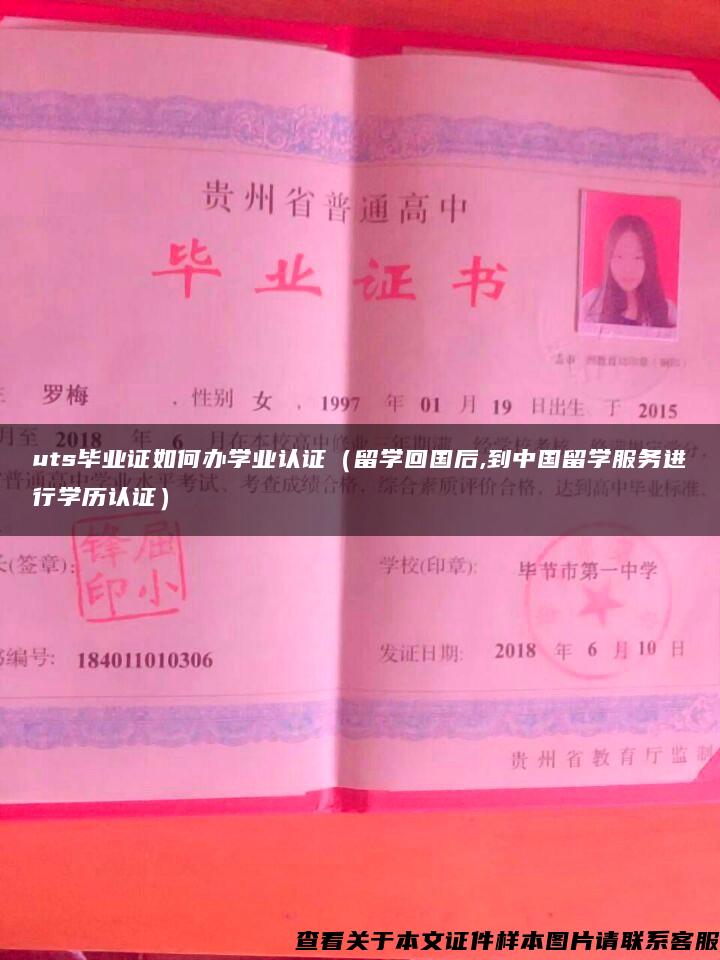 贵州省普通高中
毕业证书
罗梅 , 性别 女 , 1997 年 01 月 19 日出生 于 2015
月至 2018 年 6 月在本校高中修业三年期满
uts毕业证如何办学业认证（留学回国后,到中国留学服务进
普通高中学业水平考试、考查成绩合格，综合素质评价合格，达到高中毕业标准
行学历认证）
(签章):
屈小锋印
学校(印章): 毕节市第一中学
编号: 184011010306
发证日期: 2018 年 6 月 10 日
贵州省教育厅监制
查看关于本文证件样本图片请联系客服